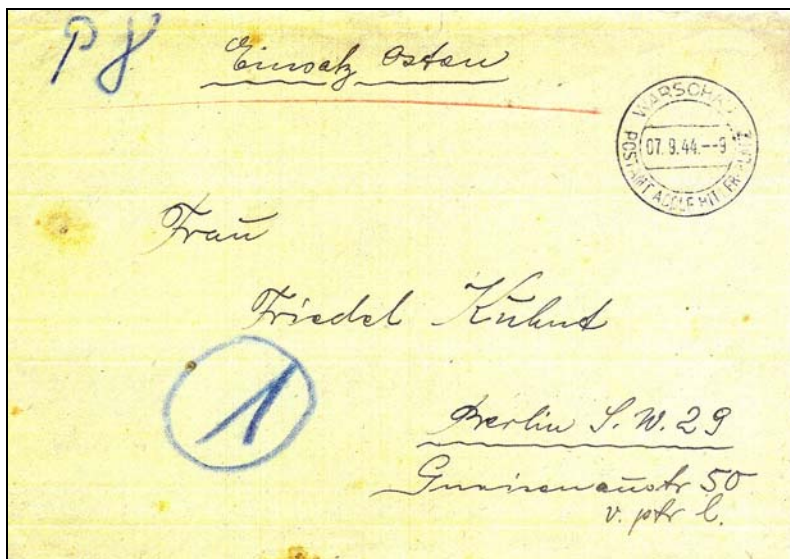 P 8
Einsatz Osten
WARSCHAU
07.9.44.--9
POSTAMT ADOLF HITLER-PLATZ
Frau
Friedel Kuhnt
1
Berlin S.W. 29
Gneisenaustr 50
v. ptr l.